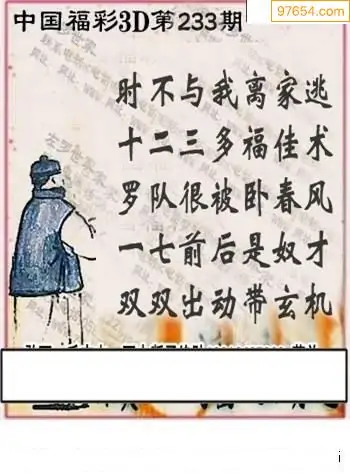 97654.com
中国福彩3D第233期
时不与我离家逃
十二三多福佳术
罗队很被卧春风
一七前后是奴才
双双出动带玄机
i